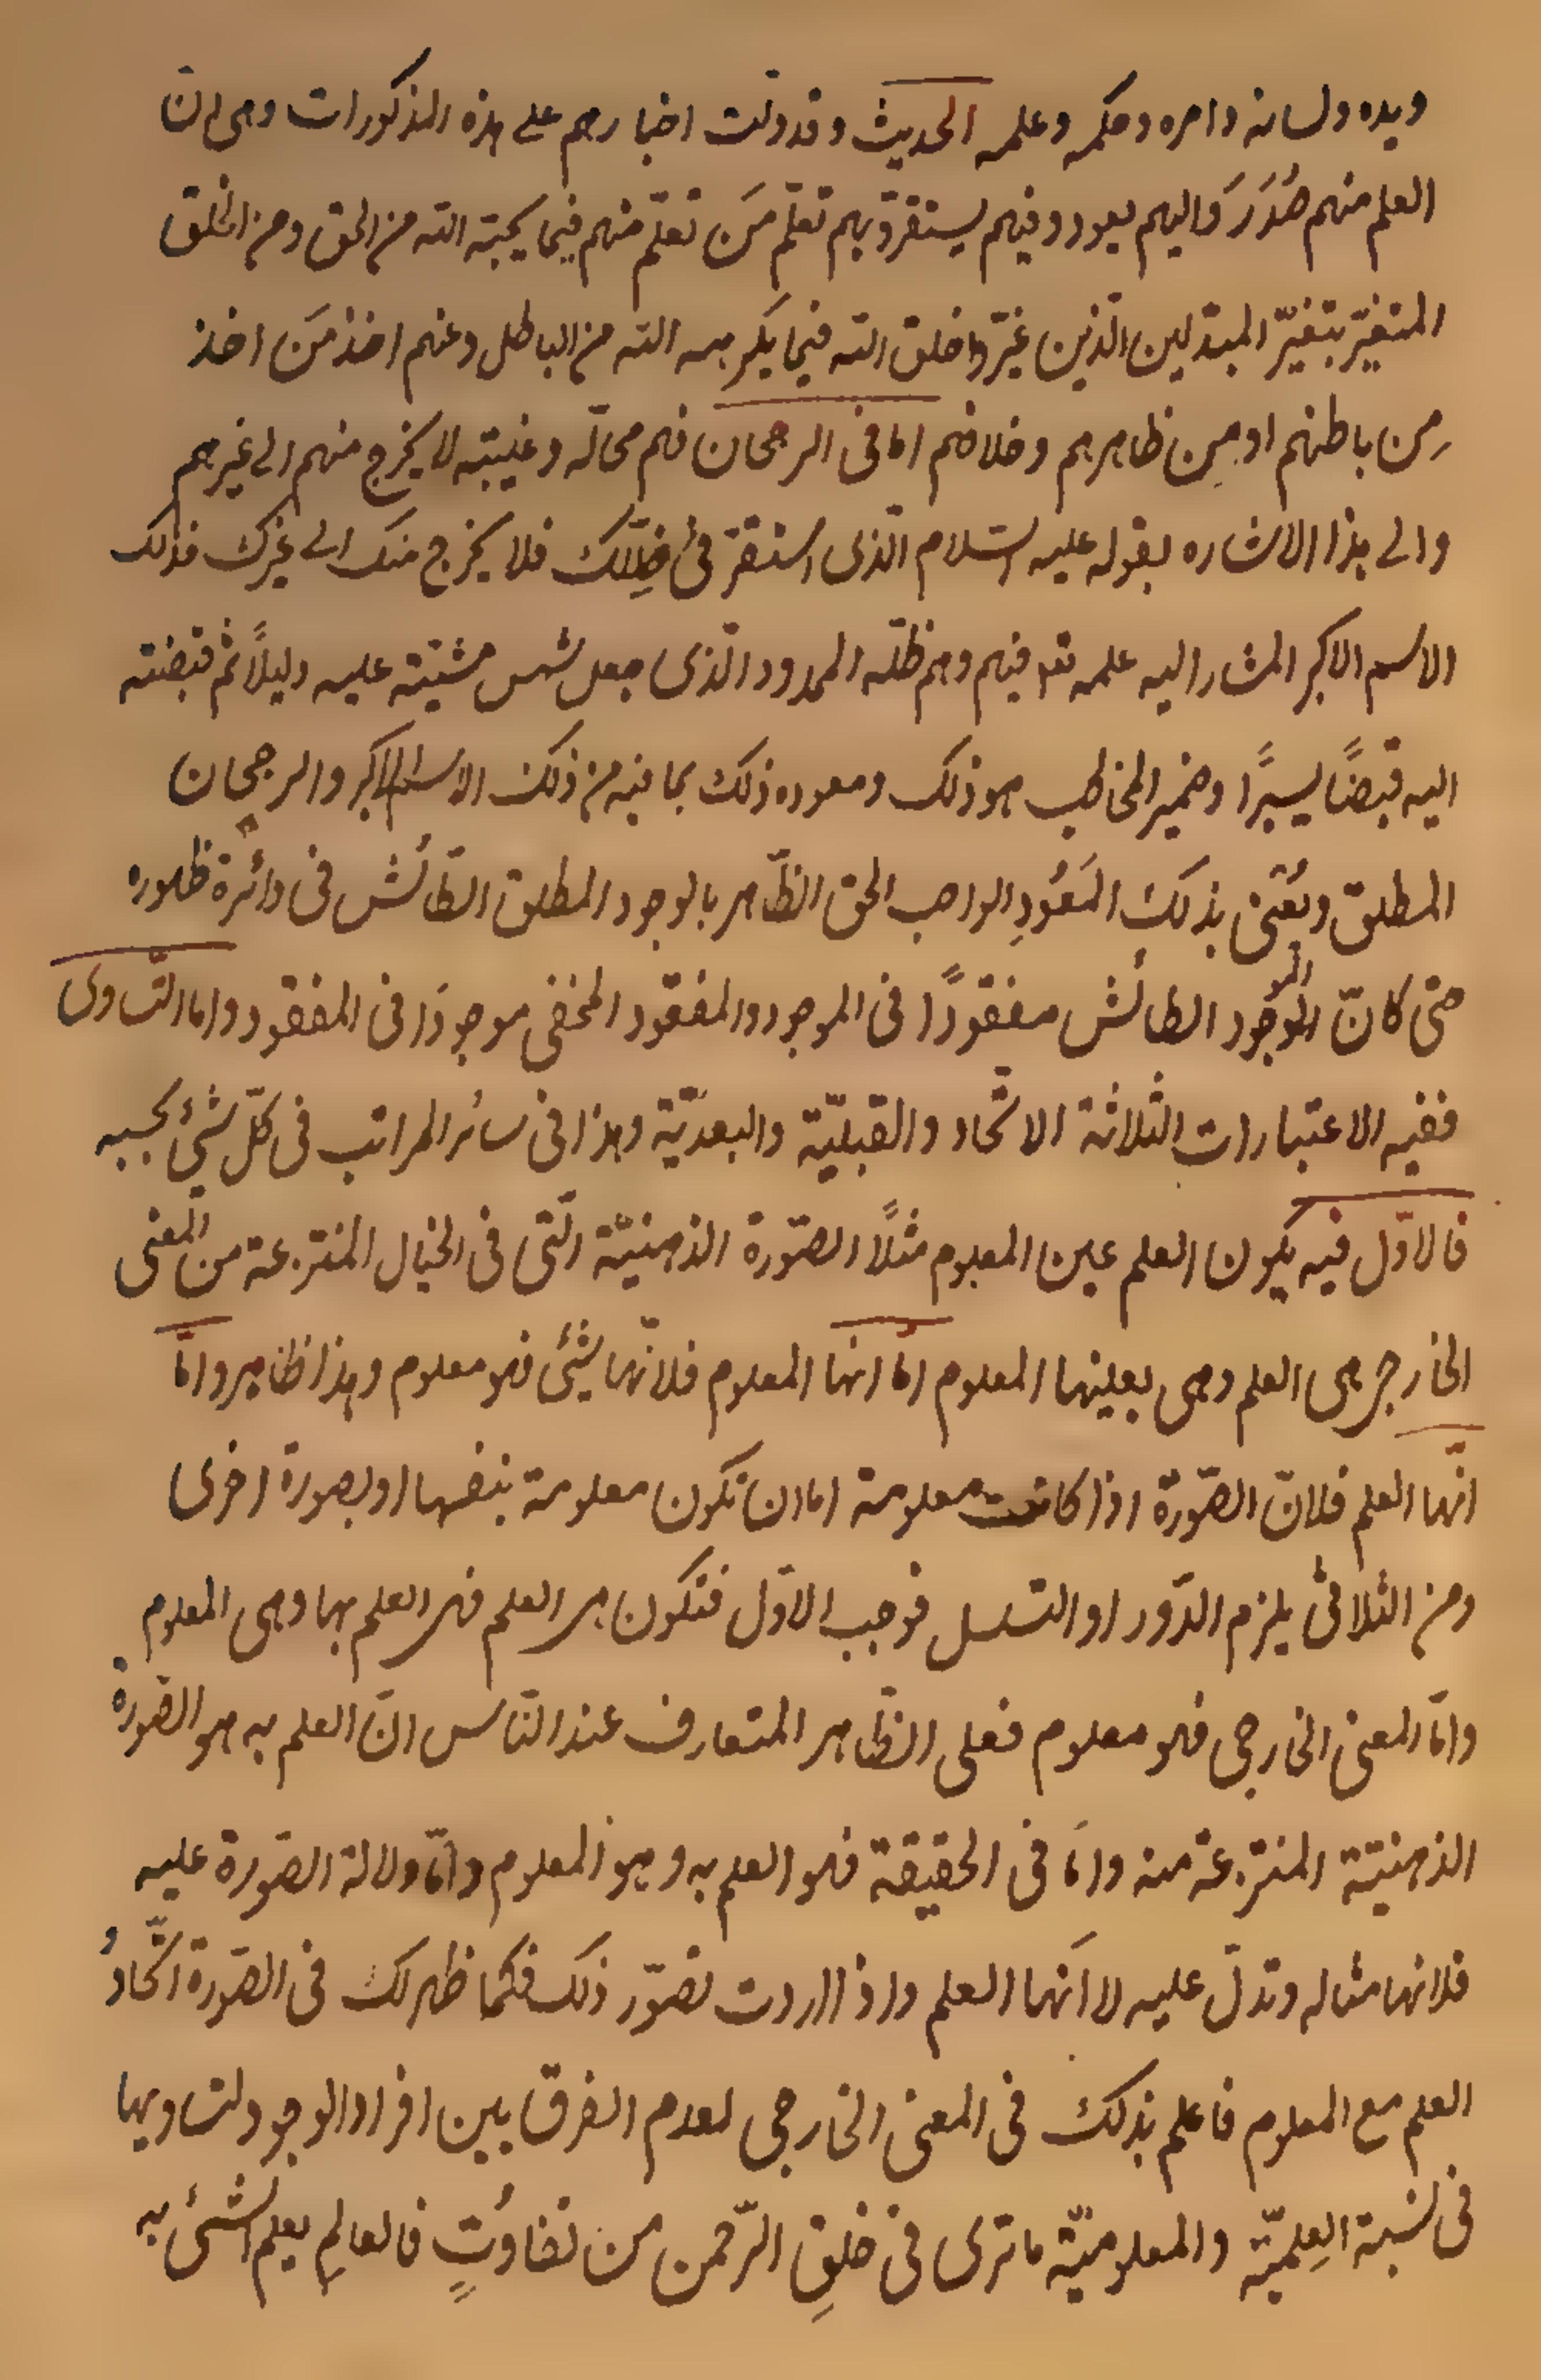 ويده ولسانه وامره وحكمه وعلمه الحديث وقد دلت اخبارهم على هذه المذكورات وهى ان
العلم منهم صُدَرَ وَاليهم يعود وفيهم يستقرّ وبهم تعلّم مَن تعلّم منهم فيما يحبّه الله من الحق ومن الخلق
المتغيّر بتغيّر المبتدلين الّذين غيّروا خلق الله فيما يكرهه الله من الباطل وعنهم اخذ مَن اخذ
مِن باطنهم او مِن ظاهرهم وخلافهم اما فى الرجحان فهم محالّه وغيبته لا يخرج منهم الى غيرهم
والى هذا الاشاره بقوله عليه السّلام الّذى استقرّ فى ظِلّك فلا يخرج منك الى غيرك فذلك
الاسم الاكبر المشار اليه علمه تعو فيهم وهم ظلّه الممدود الّذى جعل شمس مشيّته عليه دليلًا ثم قبضته
اليه قبضًا يسيرًا وضمير المخاطب هو ذلك ومعوده ذلك بما فيه من ذلك الاسم الاكبر والرجحان
المطلق ويُعْنى بذلك المَعُودِ الواجب الحق الظّاهر بالوجود المطلق الطّائش فى دائرة ظهوره
حتى كانّ الموجود الطائش مفقودًا فى الموجود والمفقود المخفى موجودَا فى المفقود واما التّساوى
ففيه الاعتبارات الثلاثة الاتّحاد والقبليّة والبعديّة وهذا فى سائر المراتب فى كلّ شئ بحسبه
فالاوّل فيه يكون العلم عين المعلوم مثلًا الصّورة الذهنيّة الّتى فى الخيال المنتزعة من المعنى
الخارجى هى العلم وهى بعينها المعلوم امّا انها المعلوم فلانّها شئ فهو معلوم وهذا ظاهر وامّا
انّها العلم فلانّ الصّورة اذا كانت معلومة اما ان تكون معلومة بنفسها او بصورة اخرى
ومن الثانى يلزم الدّور او التسلسل فوجب الاوّل فتكون هى العلم فهى العلم بها وهى المعلوم
وامّا المعنى الخارجى فهو معلوم فعلى الظّاهر المتعارف عند النّاس انّ العلم به هو الصّورة
الذهنيّة المنتزعة منه وامّا فى الحقيقة فهو العلم به وهو المعلوم وامّا دلالة الصّورة عليه
فلانها مثاله وتدلّ عليه لا انّها العلم واذا اردت تصوّر ذلك فكما ظهر لك فى الصّورة اتّحادُ
العلم مع المعلوم فاعلم بذلك فى المعنى الخارجى لعدم الفرق بين افراد الوجود لتساويها
فى نسبة العِلميّة والمعلوميّة ما ترى فى خلقِ الرّحمن من تفاوُتٍ فالعالِم يعلم الشئ به